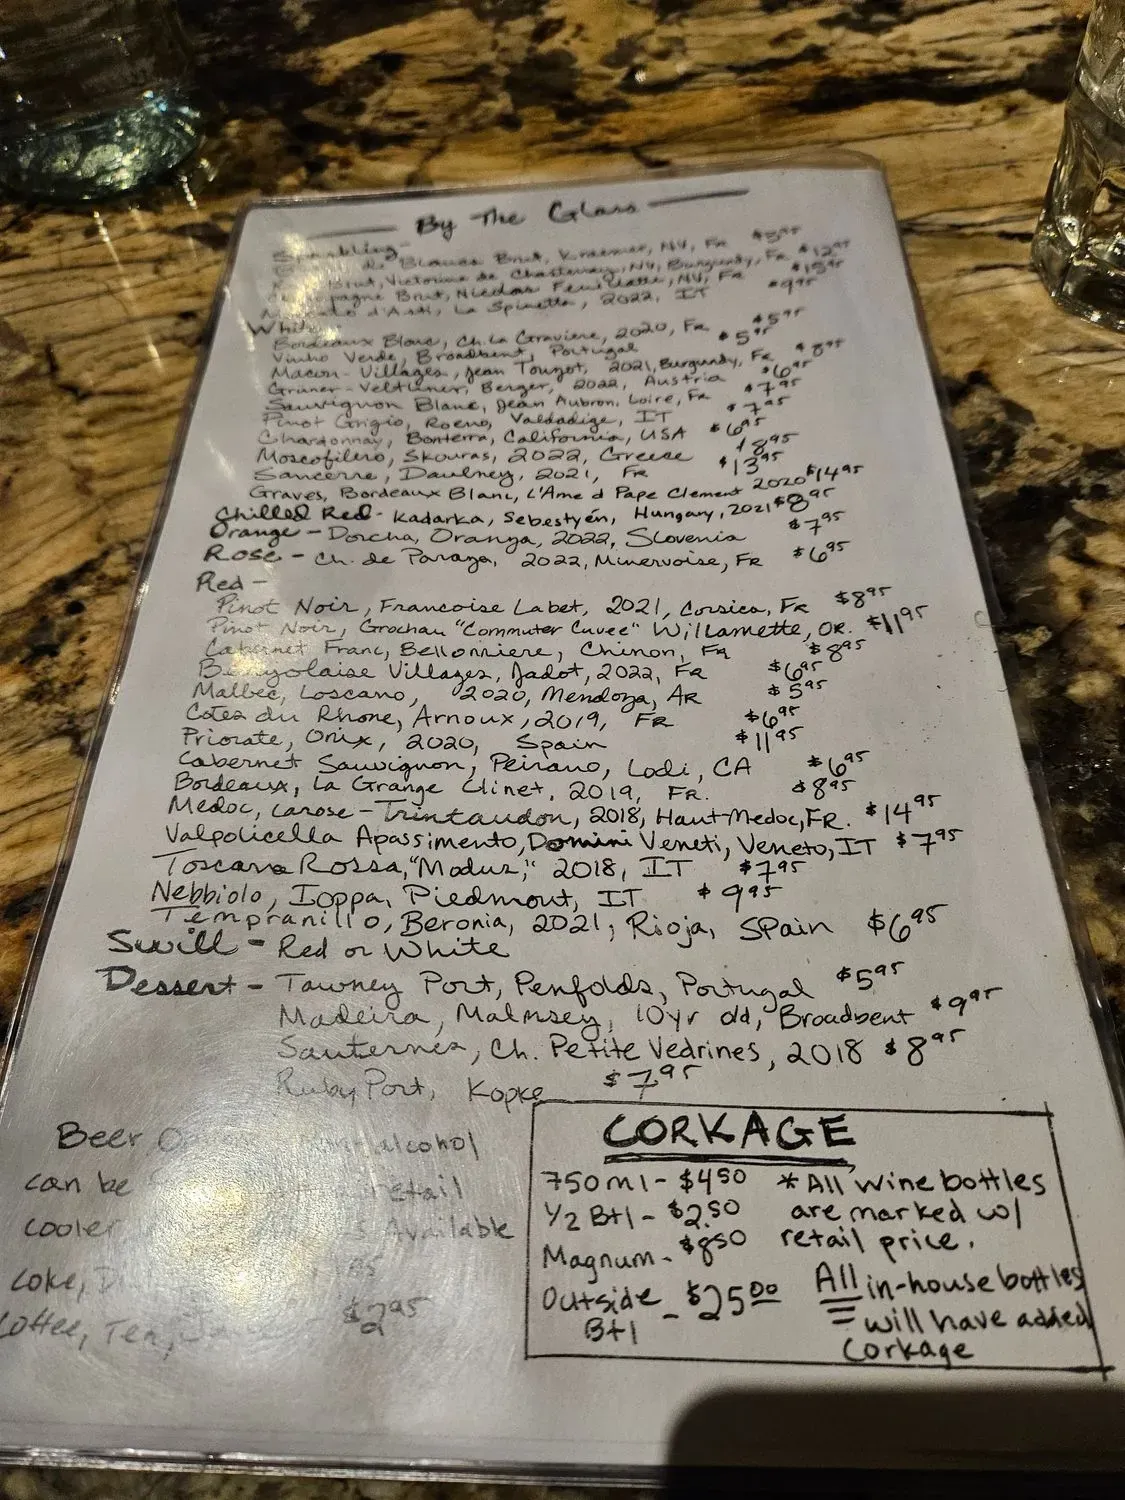 By The Glass
Sparkling -
de Blancs Brut, Kraemer, NV, FR $5.95
Brut, Victorine de Chastenay, NV, Burgundy, FR $12.95
Brut, Nicolas Feuillatte, NV, FR $15.95
d'Asti, La Spinetta, 2022, IT $9.95
White
Bordeaux Blanc, Ch. La Graviere, 2020, FR $5.95
Vinho Verde, Broadbent, Portugal $5.95
Macon-Villages, Jean Touzot, 2021, Burgundy, FR $8.95
Gruner-Veltliner, Berger, 2022, Austria $6.95
Sauvignon Blanc, Jean Aubron, Loire, FR $7.95
Pinot Grigio, Roeno, Valdadige, IT $7.95
Chardonnay, Bonterra, California, USA $6.95
Moscofilero, Skouras, 2022, Greece $8.95
Sancerre, Daulney, 2021, FR $13.95
Graves, Bordeaux Blanc, L'Ame d Pape Clement 2020 $14.95
Chilled Red - Kadarka, Sebestyén, Hungary, 2021 $8.95
Orange - Dorcha, Oranga, 2022, Slovenia $7.95
Rose - Ch. de Paraza, 2022, Minervoise, FR $6.95
Red -
Pinot Noir, Francoise Labet, 2021, Corsica, FR $8.95
Pinot Noir, Grochau "Commuter Cuvee" Willamette, OR. $11.95
Cabernet Franc, Bellonniere, Chinon, FR $8.95
Beaujolaise Villages, Jadot, 2022, FR $6.95
Malbec, Loscano, 2020, Mendoza, AR $5.95
Cotes du Rhone, Arnoux, 2019, FR $6.95
Priorate, Onix, 2020, Spain $11.95
Cabernet Sauvignon, Peirano, Lodi, CA $6.95
Bordeaux, La Grange Clinet, 2019, FR. $8.95
Medoc, Larose-Trintaudon, 2018, Haut-Medoc, FR. $14.95
Valpolicella Apassimento, Domini Veneti, Veneto, IT $7.95
Toscana Rossa, "Modus," 2018, IT $7.95
Nebbiolo, Ioppa, Piedmont, IT $9.95
Tempranillo, Beronia, 2021, Rioja, Spain $6.95
Swill - Red or White
Dessert - Tawney Port, Penfolds, Portugal $5.95
Madeira, Malmsey, 10yr old, Broadbent $9.95
Sauternes, Ch. Petite Vedrines, 2018 $8.95
Ruby Port, Kopke $7.95
Beer alcohol
can be retail
cooler Available
Coke,
Coffee, Tea, $2.95
CORKAGE
750ml - $4.50
1/2 Btl - $2.50
Magnum - $8.50
Outside Btl - $25.00
* All wine bottles
are marked w/
retail price.
All in-house bottles
will have added
corkage